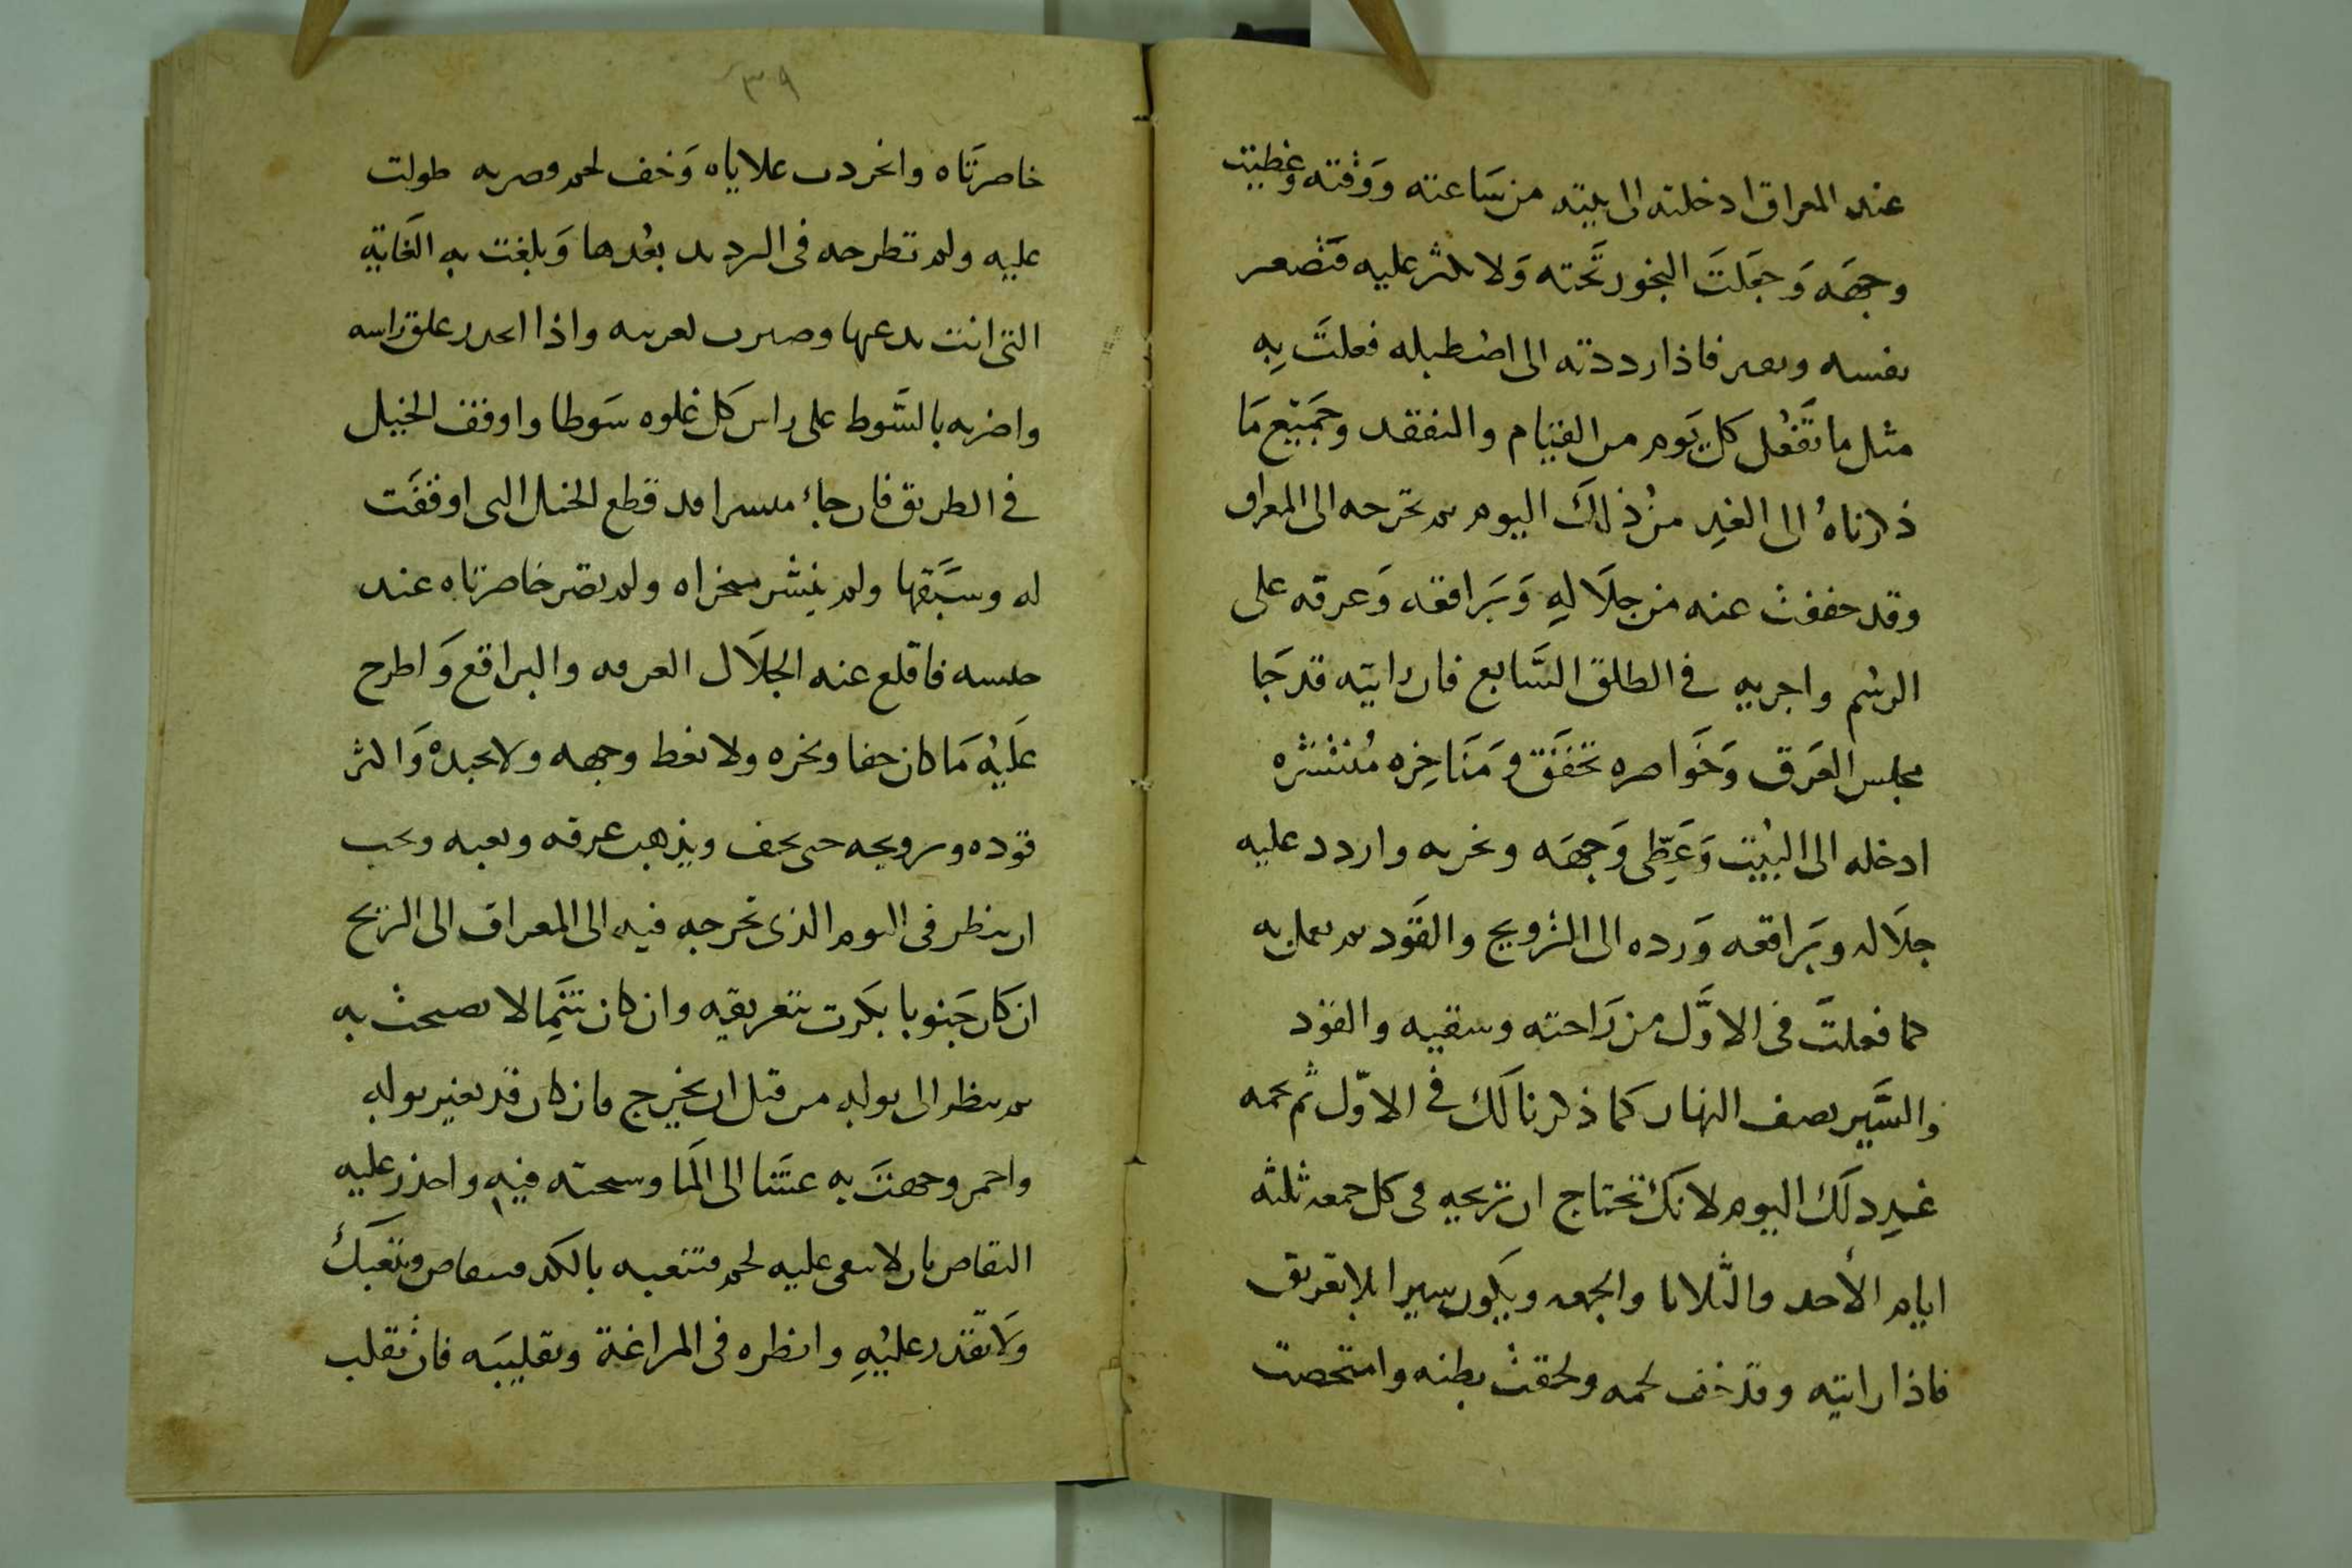 عند المعراق ادخلته الى بيته من ساعته ووقته وغطيت
وجهَه وَجَعَلتَ البخور تَحته وَلا تكثر عليه فتضعر
نفسه وىعىر فاذا رددته الى اصطبله فعلتَ بِهِ
مثل ما تَفعُل كل يَوم من القيام والتفقد وجميع مَا
ذكرناهُ الى الغدِ من ذلكَ اليوم ثم تخرجه الى المعراق
وقد خففت عنه من جلَالِهِ وَبَراقعه وَعرقه على
الرسم واجريه فى الطلق السَّابع فان رايته قد جَا
مجلس العَرَق وَخَواصره تخفَق وَمَنَاخِره مُنتشره
ادخله الى البيت وَغَطِّى وَجهَه وبخره واردد عليه
جلَاله وبَراقعه وَرده الى الترويح والقَود ثم يعمل به
كما فعلتَ فى الاوَّل من رَاحته وسقيه والقود
والسَّير نصف النهار كما ذكرنا لَك فى الاوّل ثم تجمه
غير ذلَك اليوم لانكَ تحتاج ان تريحه فى كل جمعه ثلثه
ايام الأحد والثَّلاثا والجمعه ويكون سيرا بلا تعريق
فاذا رايته وقد خف لحمه ولحقت بطنه وامتحصت
٣٩
خاصرتَاه وانجردت علاياه وَخف لحمه وصربه طولت
عليه ولم تطرحه فى الترديد بعُدها وَبلغت به الغَاية
التى انت تدعها وصيرت تعريه واذا انحدر علق راسه
واضربه بالسَّوط على راس كل غلوه سَوطا واوقف الخيل
فى الطريق فان جاء مىسرا قد قطع الخيل التى اوقفَت
له وسَبَقها ولم ينشر منخراه ولم تضر خاصرتاه عند
حبسه فاقلع عنه الجلَال العرقه والبراقع وَاطرح
عَليْه مَا كان جفا وبخره ولا تغط وجهه ولا تجبدهُ وَاكثر
قوده وترويحه حتى يجف ويذهب عرقه وتعبه ويجب
ان ينظر فى اليوم الذى تخرجه فيه الى المعراق الى الريح
ان كان جَنوبا بكَرت بتعريقه وان كان شَمِالا تصبحت به
ثم ينظر الى بوله من قبل ان يخرج فان كان قد تغير بوله
واحمر وجهتَ به عشَيا الى المَا وسبحته فيه واحذر عليه
التقاص بان لا يبقى عليه لحم فتتعبه بالكد فيتقاص ويتعبكَ
ولَا تقدر عليْهِ وانظره فى المراغة وتقليبَه فان تقلب